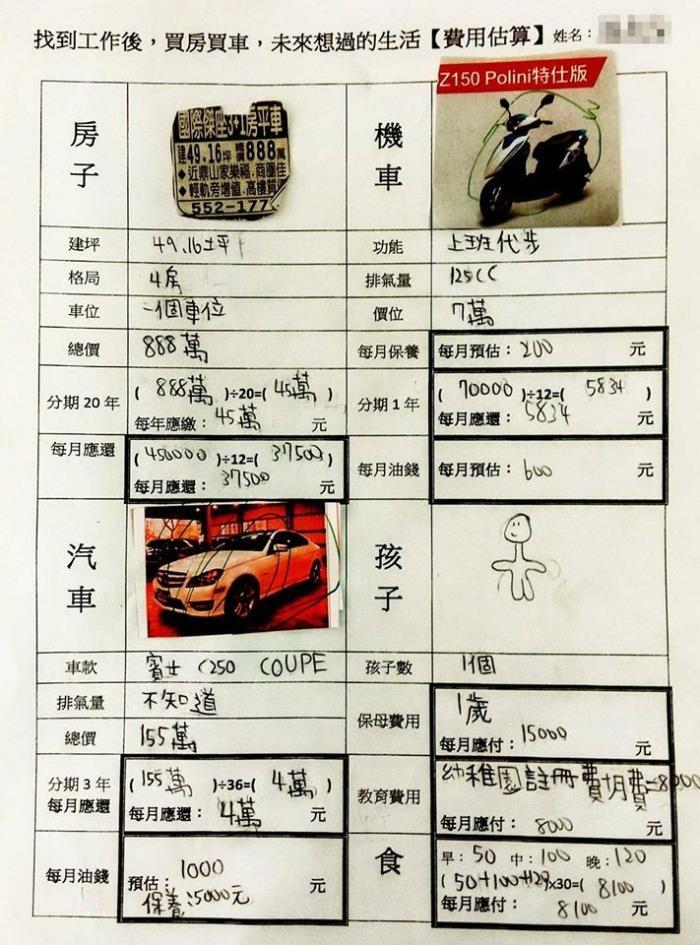 找到工作後，買房買車，未來想過的生活【費用估算】姓名：
房子
國際傑座3+1房平車
建49.16坪 售價888萬
◆近鼎山家樂福.商圈佳
◆輕軌旁增值.高樓質
552-177
建坪 49.16坪
格局 4房
車位 一個車位
總價 888萬
分期 20 年 ( 888萬 )÷20=( 45萬 )
每年應繳： 45萬 元
每月應還 (450000 )÷12=( 37500 )
每月應還： 37500 元
機車
Z150 Polini特仕版
功能 上班代步
排氣量 125CC
價位 7萬
每月保養 每月預估： 200 元
分期 1 年 ( 70000 )÷12=( 5834 )
每月應還： 5834 元
每月油錢 每月預估： 600 元
汽車
車款 賓士 C250 COUPE
排氣量 不知道
總價 155萬
分期 3 年
每月應還
( 155萬 )÷36=( 4萬 )
每月應還： 4萬 元
每月油錢 預估： 1000 元
保養：5000元
孩子
孩子數 1個
保母費用 1歲
每月應付： 15000
教育費用 幼稚園註冊費月費=8000
每月應付： 8000 元
食
早：50 中：100 晚：120
( 50+100+120 )x30=( 8100 )
每月應付： 8100 元